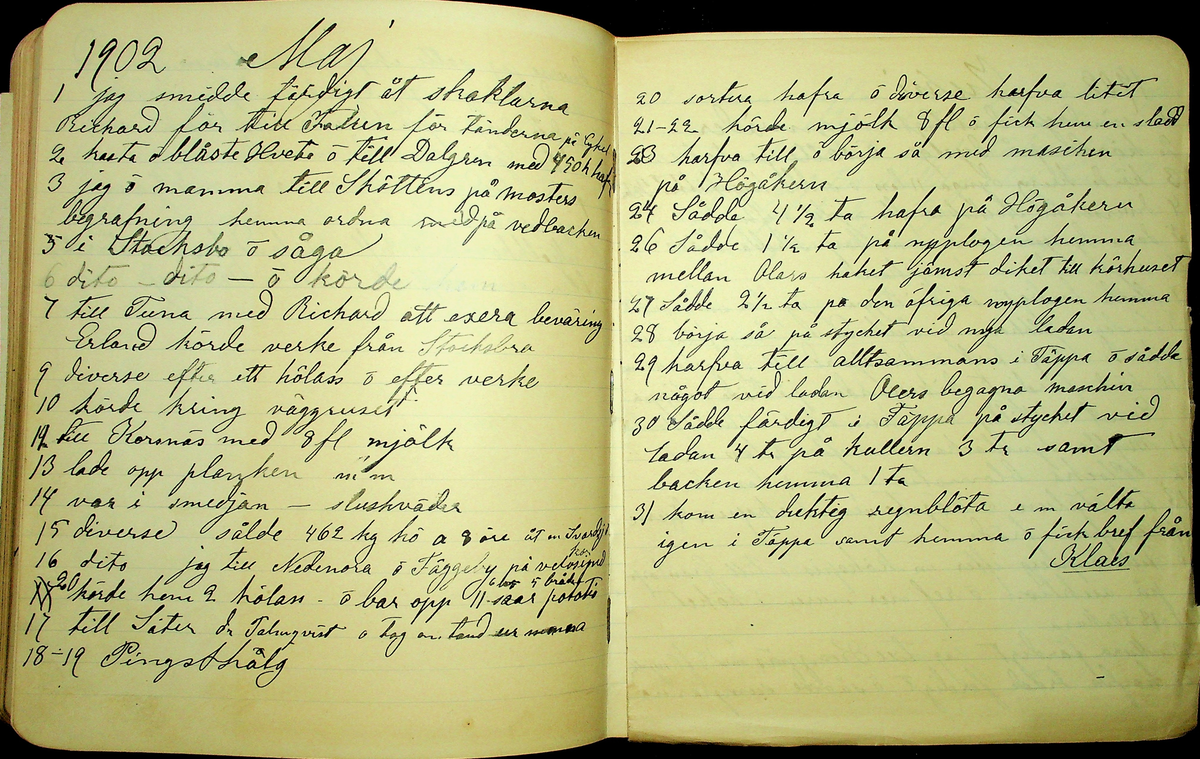 1902 Maj
1 jag smidde färdigt åt skaklarna
Richard för till Falun för tänderna på Cykel
2 kasta o blåste Hvete ö till Dalgren med 450 k haf
3 jag ö mamma till Sköttens på mosters
begrafning hemma ordna med på vedbacken
5 i Stocksbo ö såga
6 dito - dito - ö körde
7 till Tuna med Richard att exera beväring
Erland körde verke från Stocksbro
9 diverse efter ett hölass ö efter verke
10 körde kring väggruset
12 till Korsnäs med 8 fl mjölk
13 lade opp planken m m
14 var i smedjan - slushväder
15 diverse sålde 462 kg hö a 8 öre åt en
16 dito jag till Nedenora ö Täggeby på velosiped
20 körde hem 2 hölass - ö bar opp 11 säar potatis
17 till Säter dr Talmqvist o tog en tand
18-19 Pingsthälg
20 sortera hafra ö diverse harfva litet
21-22 körde mjölk 8 fl ö fick hem en sladd
23 harfva till ö börja så med masiken
på Högåkern
24 Sådde 4 1/2 ta hafra på Högåkern
26 Sådde 1 1/2 ta på nyplogen hemma
mellan Olars haket jämst diket till körhuset
27 Sådde 2 1/2 ta på den öfriga nyplogen hemma
28 börja så på stycket vid nya ladan
29 harfva till alltsammans i Täppa ö sådde
något vid ladan Olers begagna maschin
30 Sådde färdigt i Täppa på stycket vid
ladan 4 tr på kullern 3 tr samt
backen hemma 1 ta
31 kom en duktig regnblöta e m välta
igen i Täppa samt hemma ö fick bref från
Klaes